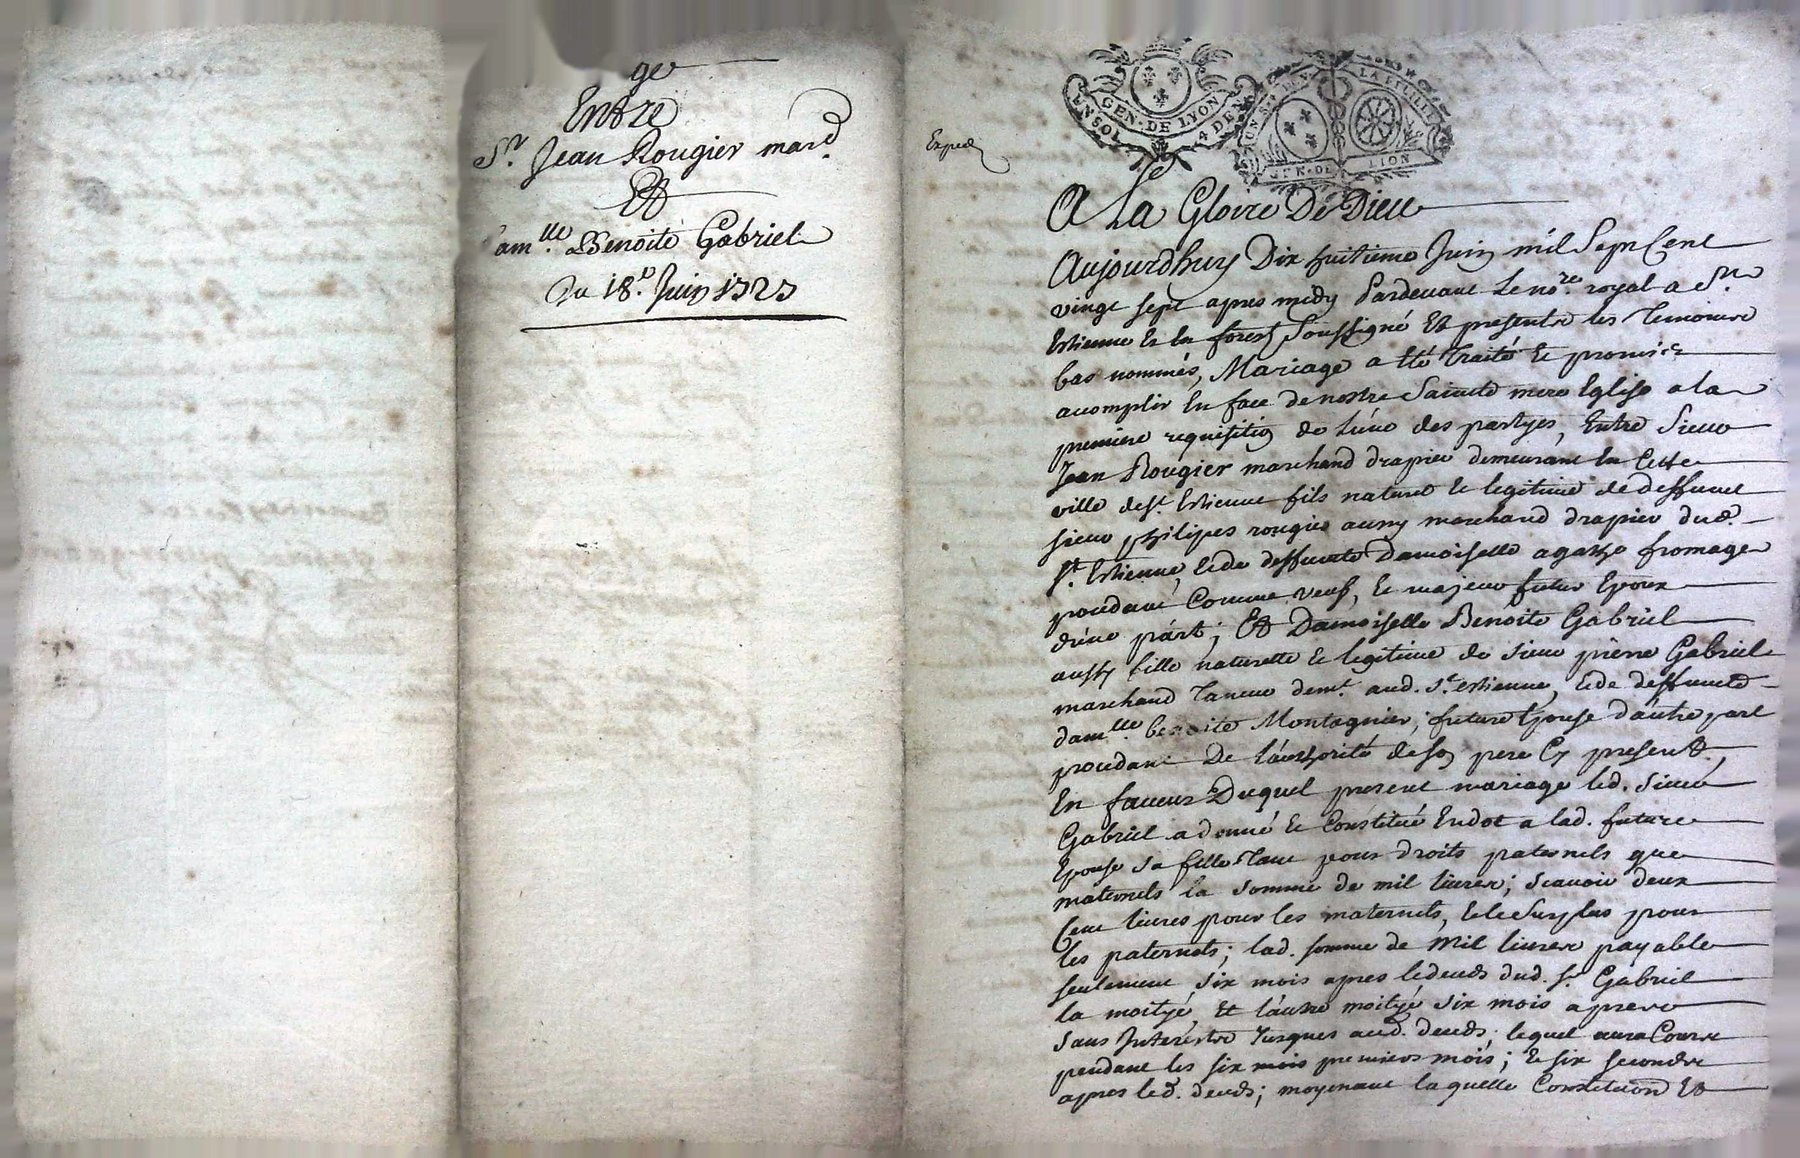 ge
Entre
Sr. Jean Rougier mard.
Et
Damlle. Benoite Gabriel
Du 18e. Juin 1727
Exped
UN SOL
GEN. DE LYON
4 DEN
LA FEUILLE
GEN. DE LION
A La Gloire De Dieu
Aujourdhuy Dix huitieme Juin mil Sept Cent
vingt sept apres midy Pardevant Le nore. royal a St.
Estienne En forest Soussigné Et presents les Temoins
bas nommés, Mariage a été Traité Et promis
acomplir En face de nostre Sainte mere Eglise a la
premiere requisition de l'une des partyes, Entre Sieur
Jean Rougier marchand drapier demeurant En Cette
ville de St. Estienne fils naturel Et legitime de deffunct
sieur philipes rougier aussy marchand drapier dud.
St. Estienne, Et de deffuncte Damoiselle agathe fromage
procedant Comme veuf, Et majeur futur Epoux
d'une part; Et Damoiselle Benoite Gabriel
aussy fille naturelle Et legitime de sieur pierre Gabriel
marchand Taneur demt. aud. St. Estienne, Et de deffuncte
damlle. benoite Montagnier; future Epouse d'autre part
procedant De l'authorité de son pere Cy present,
En faveur Duquel present mariage led. Sieur
Gabriel a donné Et Constitué En dot a lad. future
Epouse sa fille Tant pour droits paternels que
maternels la somme de mil livres; scavoir deux
Cent livres pour les maternels, Et le Surplus pour
les paternels; lad. somme de Mil livres payable
seulement six mois apres le deceds dud. Sr. Gabriel
la moityé, Et l'autre moityé six mois apres
sans Interests Jusques aud. deceds; lequel aura Cours
pendant les six mois premiers mois; Et six seconds
apres led. deceds; moyenant laquelle Constitution Et